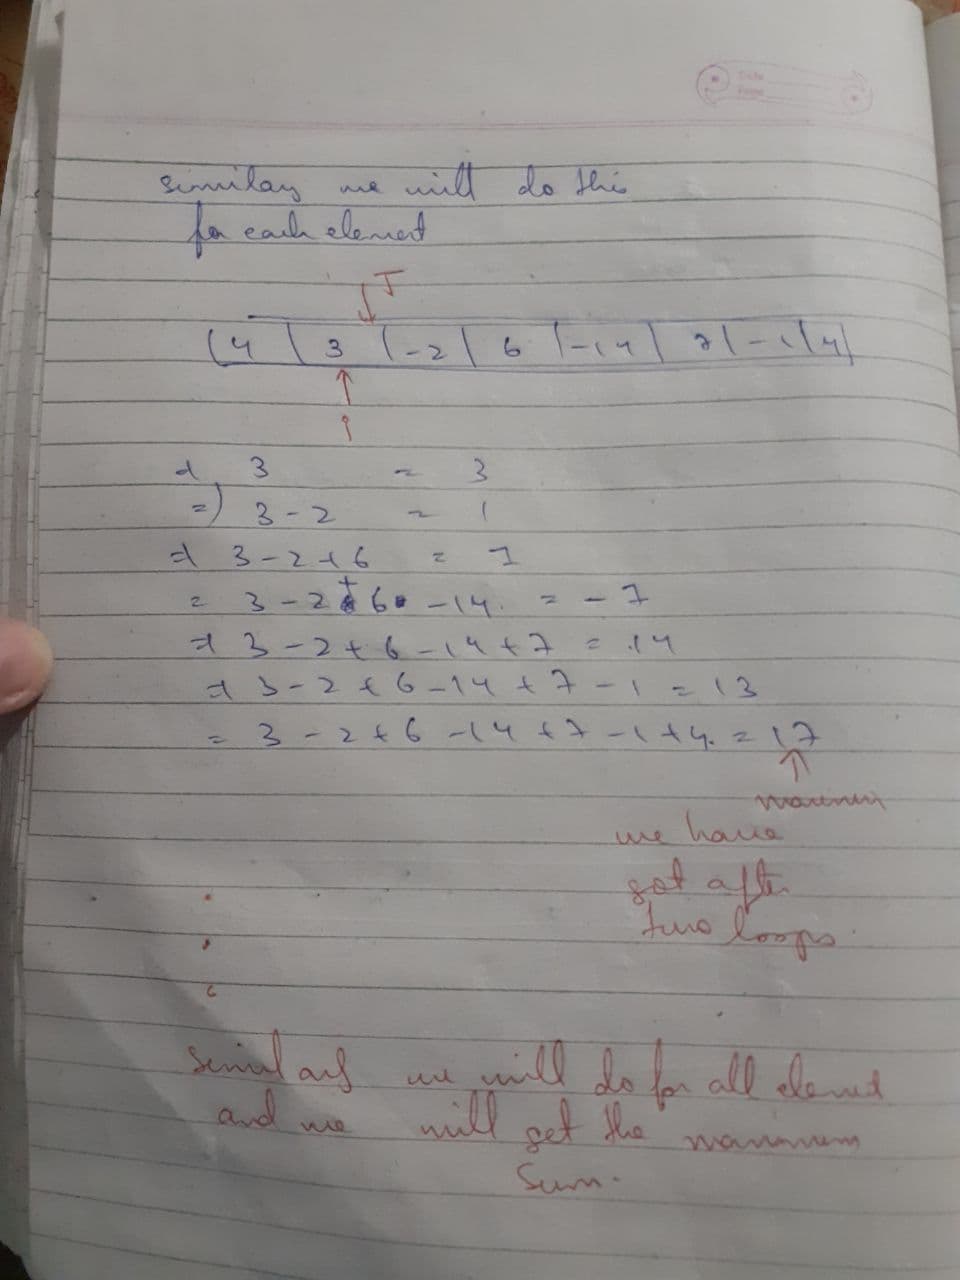 Date
similary we will do this
for each element
J
4 | 3 | -2 | 6 | -14 | 7 | -1 | 4
i
=> 3 = 3
=> 3-2 = 1
=> 3-2+6 = 7
= 3-2+6-14 = -7
=> 3-2+6-14+7 = 14
=> 3-2+6-14+7-1 = 13
= 3-2+6-14+7-1+4 = 17
we have
got after
two loops
we will do for all
and we will get the
Sum.